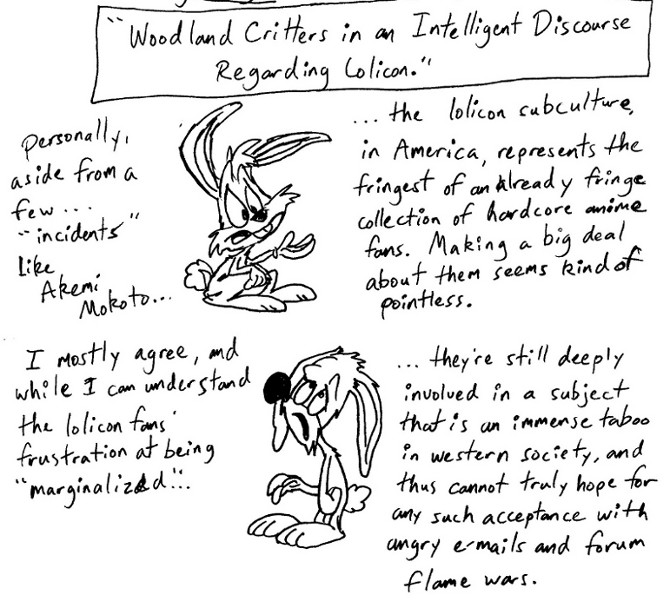 "Woodland Critters in an Intelligent Discourse
Regarding Lolicon."
Personally,
aside from a
few...
"incidents"
like
Akemi
Mokoto...
... the lolicon subculture,
in America, represents the
fringest of an already fringe
collection of hardcore anime
fans. Making a big deal
about them seems kind of
pointless.
I mostly agree, and
while I can understand
the lolicon fans'
frustration at being
"marginalized"...
... they're still deeply
involved in a subject
that is an immense taboo
in western society, and
thus cannot truly hope for
any such acceptance with
angry e-mails and forum
flame wars.